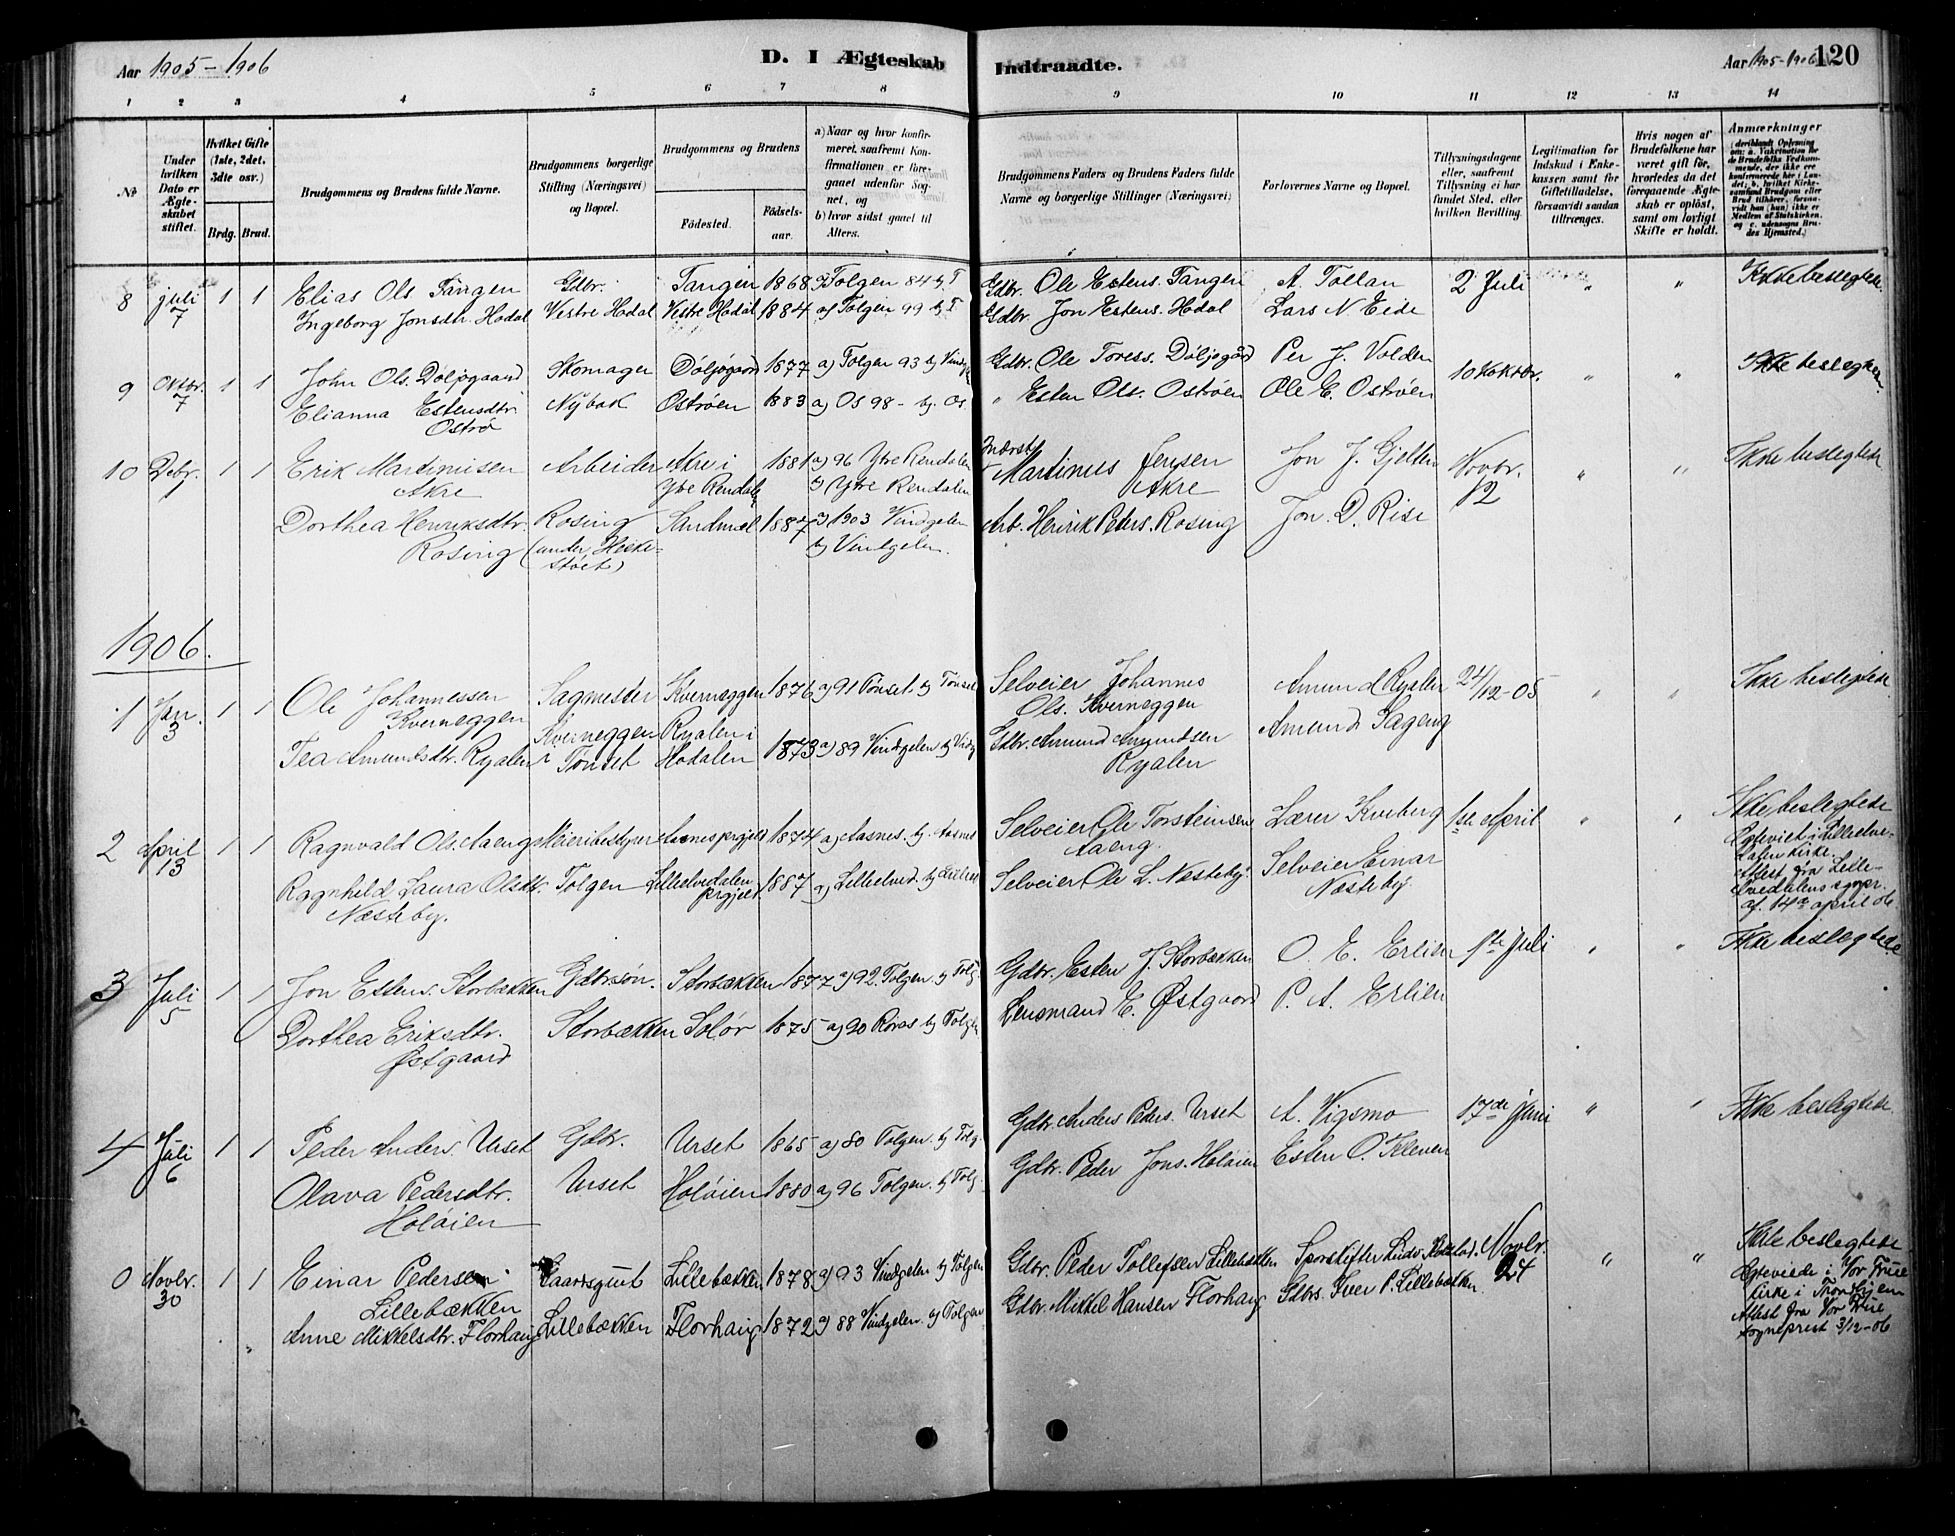 Aar 1905-1906
D. I Ægteskab Indtraadte.
Aar 1905-1906 120
1 2 3 4 5 6 7 8 9 10 11 12 13 14
No
Under hvilken Dato er Ægteskabet stiftet.
Hvilket Gifte (1ste, 2det, 3die osv.)
Brdg. Brud.
Brudgommens og Brudens fulde Navne.
Brudgommens borgerlige Stilling (Næringsvei) og Bopæl.
Brudgommens og Brudens
Fødested. Fødselsaar.
a) Naar og hvor konfirmeret, saafremt Konfirmationen er foregaaet udenfor Sognet, og
b) hvor sidst gaaet til Alters.
Brudgommens Faders og Brudens Faders fulde Navne og borgerlige Stillinger (Næringsvei)
Forlovernes Navne og Bopæl.
Tillysningsdagene eller, saafremt Tillysning ei har fundet Sted, efter hvilken Bevilling.
Legitimation for Indskud i Enkekassen samt for Giftetilladelse, forsaavidt saadan tiltrænges.
Hvis nogen af Brudefolkene har været gift før, hvorledes da det foregaaende Ægteskab er opløst, samt om lovligt Skifte er holdt.
Anmærkninger
8 juli 7 1 1 Elias Ols Tangen Gdbr. Tangen 1868 a) Tolgen 84 b) T Gdbr. Ole Estens. Tangen A. Tollan 2 Juli " " Ikke beslegtede.
Ingeborg Jonsdtr. Hodal Vestre Hodal Vestre Hodal 1884 a) Tolgen 99 b) T Gdbr. Jon Estens. Hodal Lars N Eide
9 Oktbr. 7 1 1 John Ols. Døljøgaard Skomager Døljøgaard 1877 a) Tolgen 93 b) Gdbr. Ole Toress. Døljøgård Per J. Volden 1 Oktbr. " " Ikke beslegtede.
Elianna Estensdtr. Nybak Ostrøen 1883 a) Os 98 - b. Os " Esten Ols. Ostrøen Ole E. Ostrøen
Ostrø
10 Debr. 1 1 Erik Martinusen Arbeider Akre i 1881 a) 96 Ytre Rendalen Martinus Jensen Jon J. Gjelten Novbr. " " Ikke beslegtede
Akre Ytre Rendalen b) Ytre Rendalen Akre 12
Dorthea Henriksdtr. Rosing Sandmæl 1887 a) 1903 Vindgelen Arb. Henrik Peders. Rosing Jon. D. Rise
Rosing b) Vindgelen.
1906.
1 Jan. 3 1 1 Ole Johannessen Sagmester Kverneggen 1876 a) 91 Tønset. b) Tønset Selveier Johannes Amund Ryalen 24/12-05 " " Ikke beslegtede
Kverneggen Kverneggen Ryalen i Ols. Kverneggen Amund Sageng
Tea Amundsdtr. Ryalen Tønset Hodalen 1873 a) 89 Vindgelen b) Vindg Gdbr. Amund Amundsen
Ryalen
2 April 13 1 1 Ragnvald Ols. Aaeng Meieribestyrer Aasnes prgjeld 1874 a) Aasnes. b) Aasnes Selveier Ole Torsteinsen Lærer Kveberg 1ste April " " Ikke beslegtede
Aaeng.
Ragnhild Laura Olsdtr. Tolgen Lilleelvedalen prgjeld. 1887 a) Lilleelved. Selveier Ole L. Næsteby. Selveier Einar
Næsteby. Næsteby.
Egteviet i Lilleelvedalen kirke. Attest fra Lilleelvedalens sgnpr. af. 14de april 06.
3 Juli 5 1 1 Jon Estens. Storbækken Gdbrsøn. Storbækken 1877 a) 92. Tolgen. b) Tolg Gdbr. Esten J. Storbækken O. E. Erlien 1ste Juli " " Ikke beslegtede
Dorthea Eriksdtr. Storbækken Solør 1875 a) 90 Røros b) Tolgen Lensmand E. Østgaard P. A. Erlien
Østgaard
4 Juli 6 1 1 Peder Anders. Urset Gdbr. Urset 1865 a) 80 Tolgen. b) Tolg. Gdbr. Anders Peders. Urset A. Vigsmo 17de Juni " " Ikke beslegtede.
Olava Pedersdtr. Urset Holøien 1880 a) 96 Tolgen. b) Tolg. Gdbr. Peder Jons. Holøien Esten O. Kleven
Holøien
0 Novbr. 30 1 1 Einar Pedersen Gaardsgut Lillebækken 1878 a) 93 Vindgelen b) Tolgen Gdbr. Peder Tollefsen Lillebækken Novbr. 24 " " Ikke beslegtede
Lillebækken
Anne Mikkelsdtr. Florhaug Lillebækken Florhaug 1872 a) 88 Vindgelen. b) Tolgen Gdbr. Mikkel Hansen Florhaug Gdbrs. Iver P. Lillebækken
Egteviede i Vor Frue kirke i Trondhjem Attest fra Vor Frue sogneprest 3/12-06